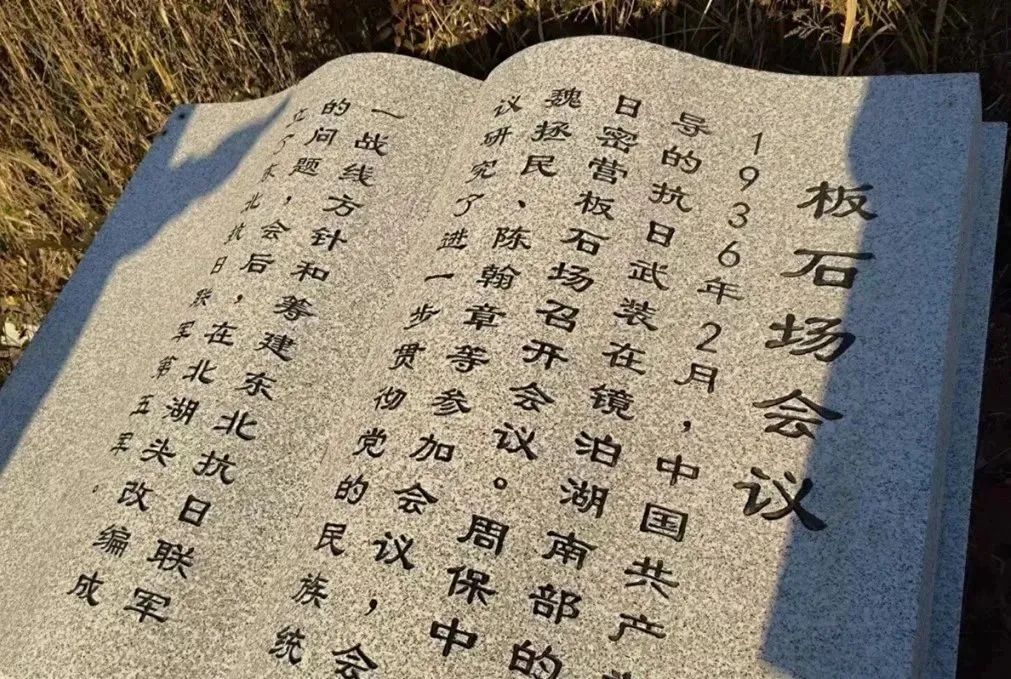 板石场会议
1936年2月，中国共产
导的抗日武装在镜泊湖南部的
日密营板石场召开会议。周保中
魏拯民、陈翰章等参加会议，会
议研究了进一步贯彻党的民族统
一战线方针和筹建东北抗日联军
的问题，会后，在北湖头改编成
立了东北抗日联军第五军。